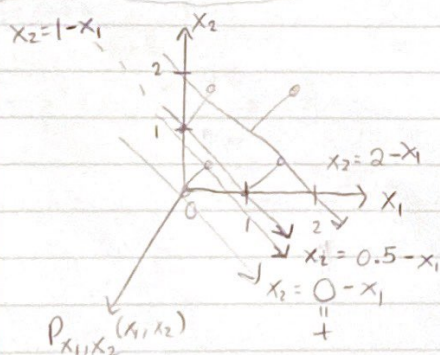 x₂=1-x₁
x₂
2
1
x₂=2-x₁
0
1
2
x₁
x₂=0.5-x₁
x₂=0-x₁
=
t
P_{x₁,x₂}(x₁,x₂)